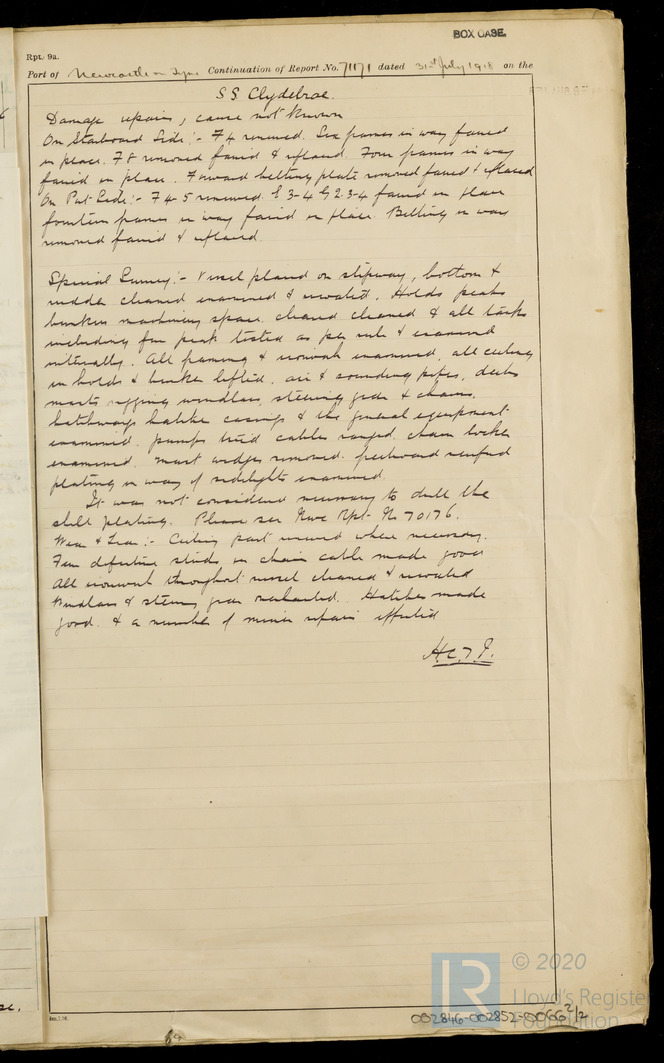 BOX CASE.
Rpt. 9a.
Port of Newcastle on Tyne Continuation of Report No. 71171 dated 31st July 1918 on the
SS Clydebrae.
Damage repairs, cause not known
On Starboard Side :- F4 renewed. Six frames in way faired
in place. F8 removed faired & replaced. Four frames in way
faired in place. Forward belting plate removed faired & replaced
On Port Side :- F4-5 renewed. E 3-4 G 2-3-4 faired in place
fourteen frames in way faired in place. Belting in way
removed faired & replaced.
Special Survey :- Vessel placed on slipway, bottom &
rudder cleaned examined & recoated. Holds peaks
bunkers machinery space cleared cleaned & all tanks
including fore peak tested as per rule & examined
internally. All framing & ironwork examined, all ceiling
in holds & bunker lifted, air & sounding pipes, decks
masts rigging windlass, steering gear & chains.
hatchways hatches casings & the general equipment
examined. pumps tried cables ranged. chain locker
examined. mast wedges removed. freeboard verified
plating in way of sidelights examined.
It was not considered necessary to drill the
shell plating. Please see Nwc Rpt. No 70176.
Wear & Tear :- Ceiling part renewed where necessary.
Few defective studs in chain cable made good
All ironwork throughout vessel cleaned & recoated
Windlass & steering gear overhauled. Hatches made
good. & a number of minor repairs effected
© 2020
Lloyd's Register
Foundation
002846-002852-0066 2/2